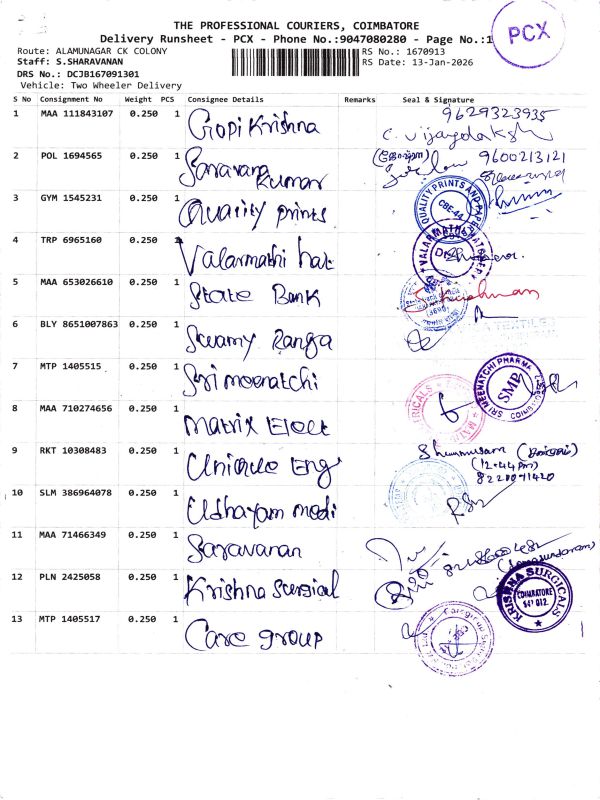 THE PROFESSIONAL COURIERS, COIMBATORE
Delivery Runsheet - PCX - Phone No.:9047080280 - Page No.:1
PCX
Route: ALAMUNAGAR CK COLONY
RS No.: 1670913
Staff: S.SHARAVANAN
RS Date: 13-Jan-2026
DRS No.: DCJB167091301
Vehicle: Two Wheeler Delivery
S No Consignment No Weight PCS Consignee Details Remarks Seal & Signature
1 MAA 111843107 0.250 1 Gopi Krishna 9629323935
2 POL 1694565 0.250 1 Saravana Kumar 9600213121
3 GYM 1545231 0.250 1 Quality prints QUALITY PRINTS AND CBE-44
4 TRP 6965160 0.250 1 Valarmathi hat VALARMATHI
5 MAA 653026610 0.250 1 State Bank
6 BLY 8651007863 0.250 1 Swamy Ranga
7 MTP 1405515 0.250 1 Sri meenatchi SRI MEENATCHI PHARMA SMP
8 MAA 710274656 0.250 1 Matrix Elect
9 RKT 10308483 0.250 1 Unique Eng (12.44 pm)
10 SLM 386964078 0.250 1 Udhayam medi
11 MAA 71466349 0.250 1 Saravanan
12 PLN 2425058 0.250 1 Krishna surgical KRISHNA SURGICALS COIMBATORE 641 012
13 MTP 1405517 0.250 1 Care group